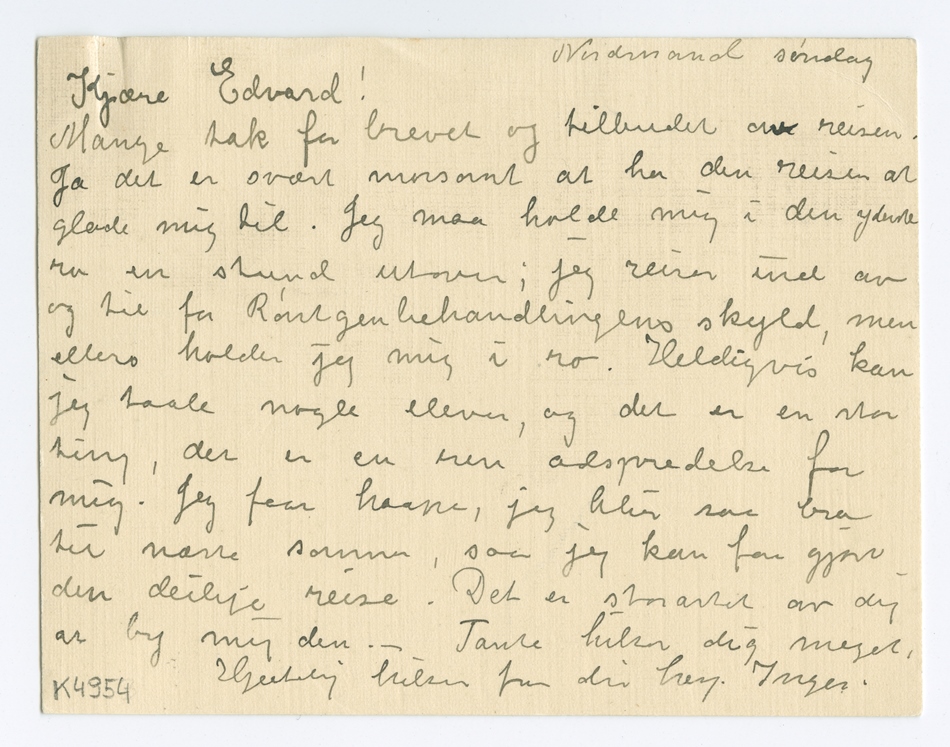 Nordstrand søndag
Kjære Edvard!
Mange tak for brevet og tilbudet om reisen.
Ja det er svært morsomt at ha den reisen at
glæde mig til. Jeg maa holde mig i den yderste
ro en stund utover; jeg reiser ind av
og til for Röntgenbehandlingens skyld, men
ellers holder jeg mig i ro. Heldigvis kan
jeg taale nogle elever, og det er en stor
ting, det er en ren adspredelse for
mig. Jeg faar haape, jeg blir saa bra
til næste sommer, saa jeg kan faa gjøre
den deilige reise. Det er storartet av dig
at by mig den. — Tante hilser dig meget.
Hjertelig hilsen fra din heng. Inger.
K4954